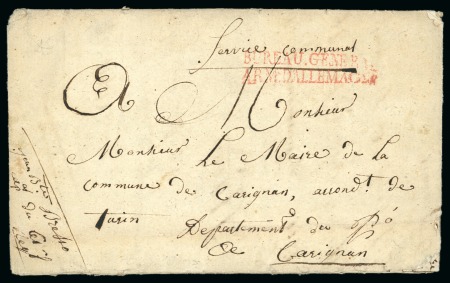 Service Communal
BUREAU. GENERAL
ARM. D'ALLEMAGNE
A Monsieur
Monsieur Le Maire de La
Commune de Carignan, arrondt. de
turin Departement du Pô
De Carignan